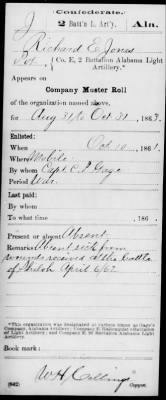 Confederate.
J 2 Batt'n L. Art'y. Ala.
Richard E. Jones
Pvt, Co. E, 2 Battalion Alabama Light
Artillery.*
Appears on
Company Muster Roll
of the organization named above,
for Aug 31 to Oct 31, 1863.
Enlisted:
When Oct 10, 1861.
Where Mobile
By whom Capt. C. P. Gage
Period War
Last paid:
By whom
To what time , 186 .
Present or absent Absent
Remarks: Absent sick from
wounds received at the battle
of Shiloh April 6/62
Book mark:
W H Colling
(642) Copyist.